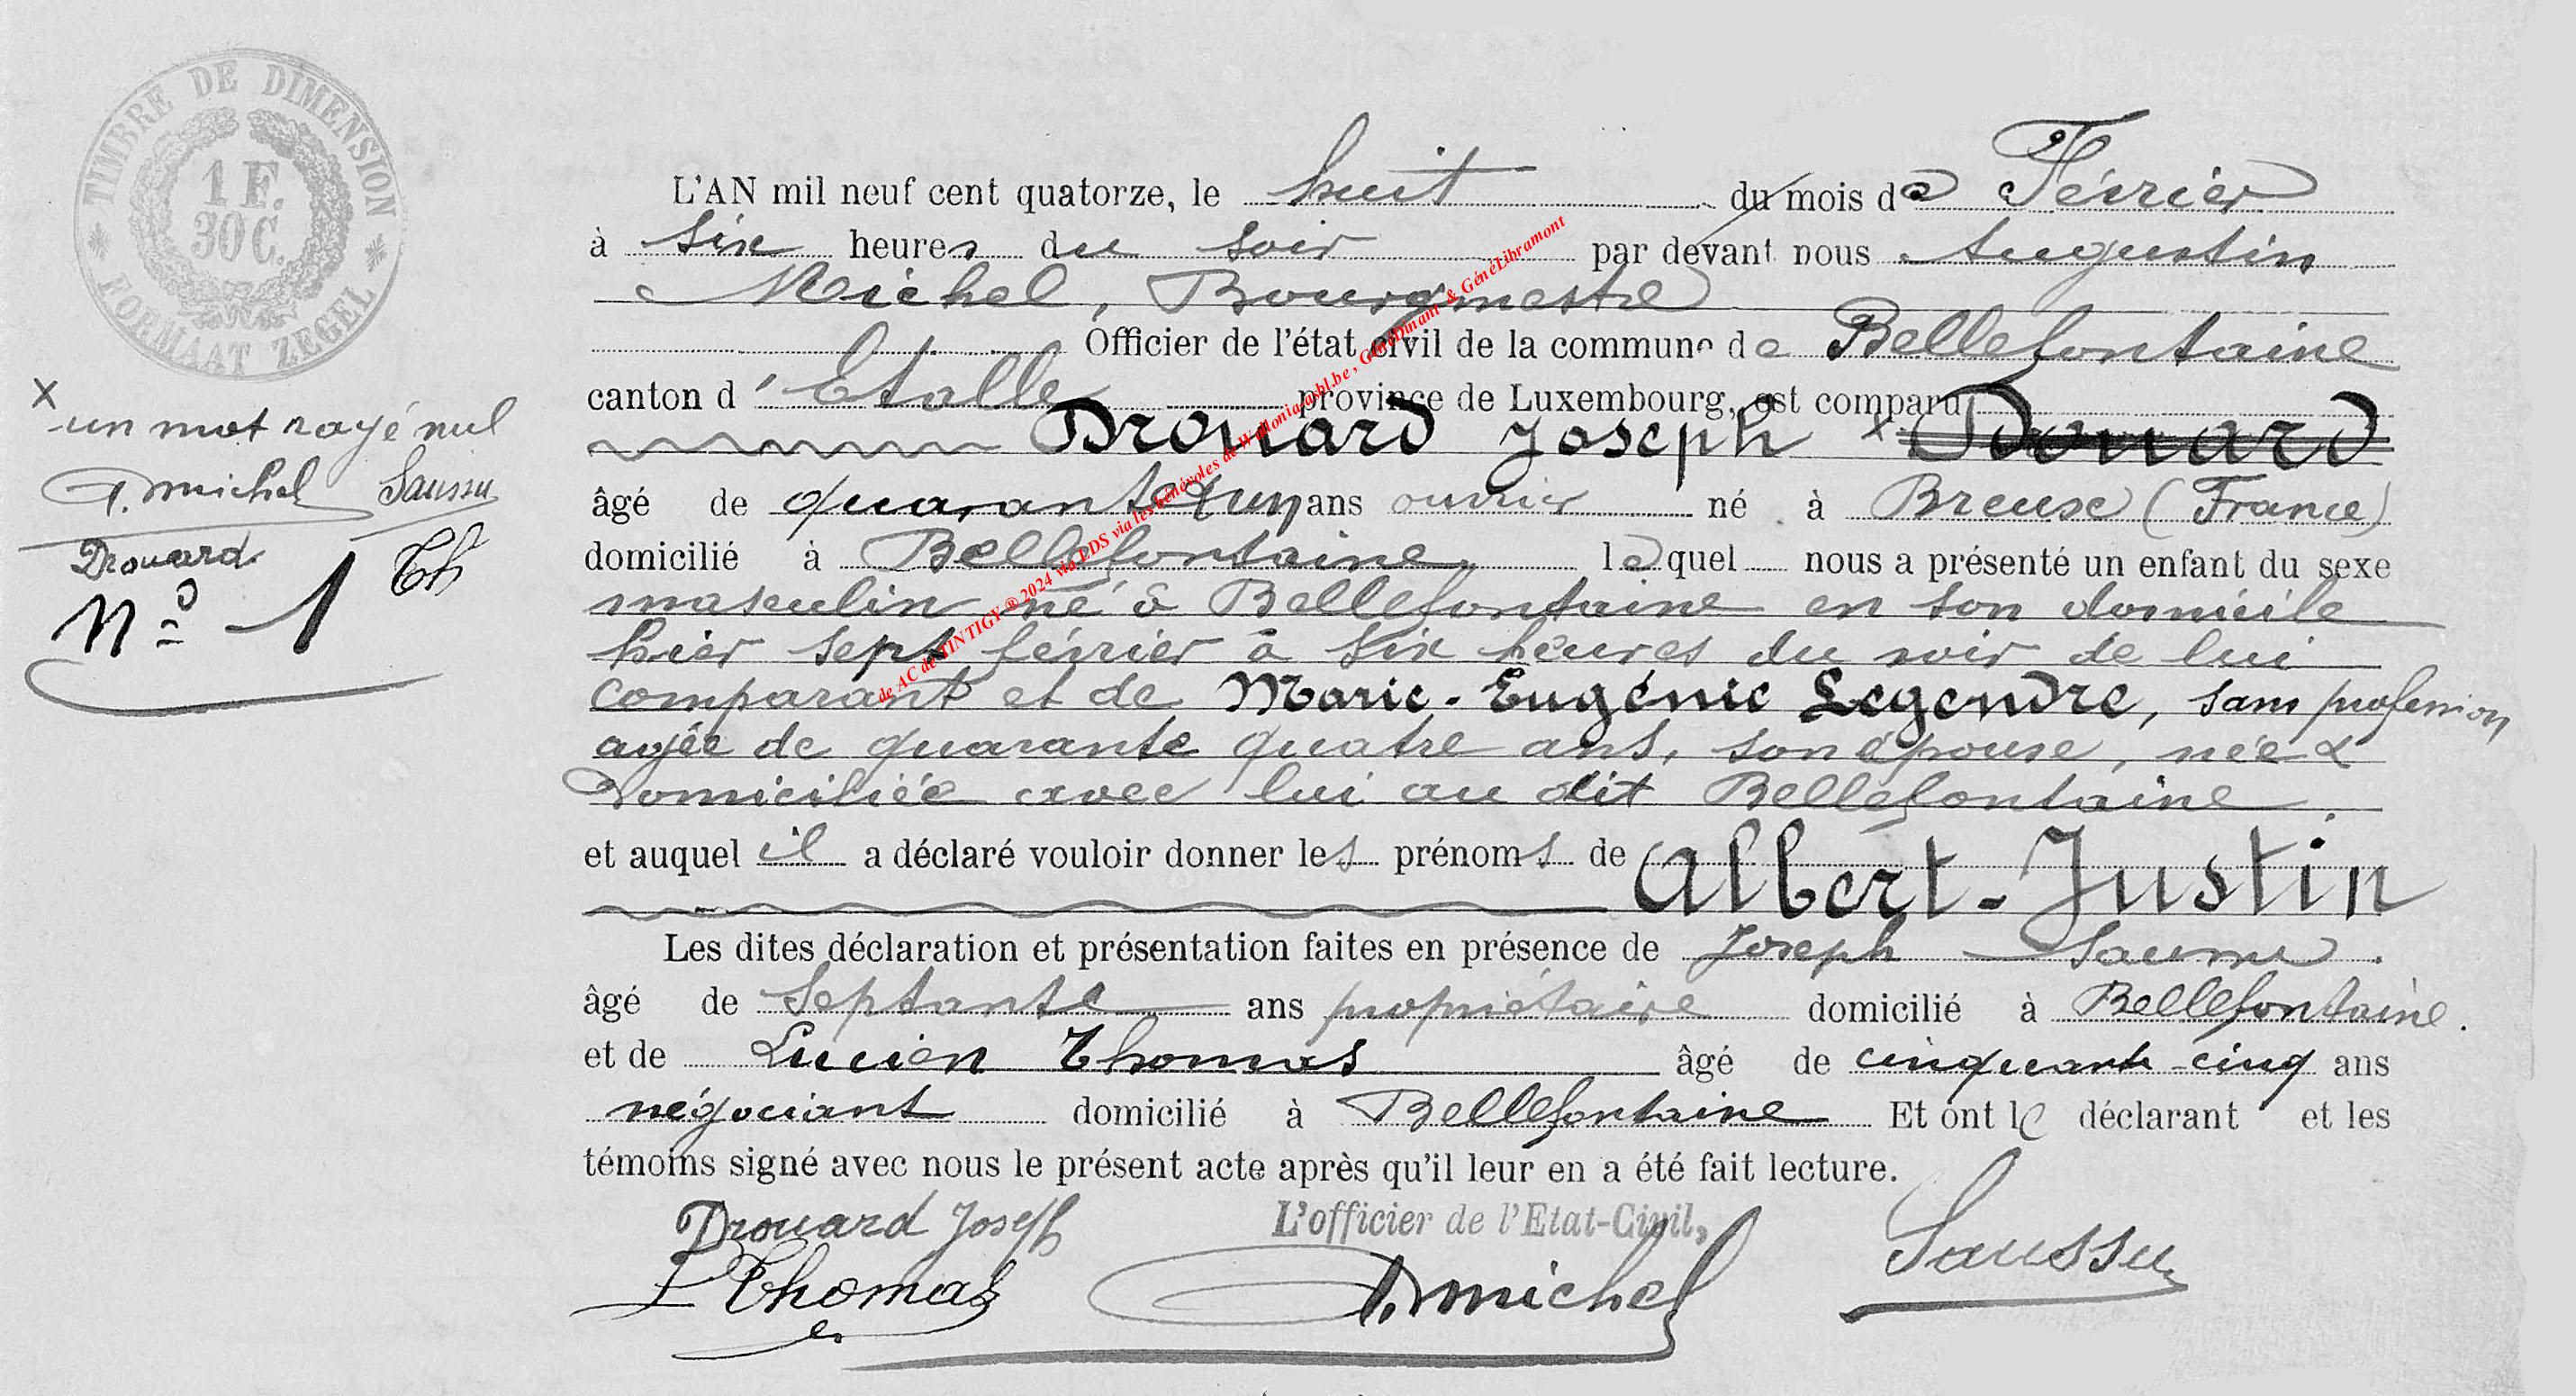 TIMBRE DE DIMENSION
1 F.
30 C.
FORMAAT ZEGEL
L'AN mil neuf cent quatorze, le huit du mois de Février
à six heures du soir par devant nous Augustin
Michel, Bourgmestre
Officier de l'état civil de la commune de Bellefontaine
canton d'Etalle province de Luxembourg, est comparu
Drouard Joseph x Drouard
âgé de quarante un ans ouvrier né à Breuse (France)
domicilié à Bellefontaine lequel nous a présenté un enfant du sexe
masculin né à Bellefontaine en son domicile
hier sept février à six heures du soir de lui
comparant et de Marie-Eugénie Legendre, sans profession
agée de quarante quatre ans, son épouse, née &
domiciliée avec lui au dit Bellefontaine
et auquel il a déclaré vouloir donner les prénoms de Albert-Justin
Les dites déclaration et présentation faites en présence de Joseph Saussu.
âgé de septante ans propriétaire domicilié à Bellefontaine.
et de Lucien Thomas âgé de cinquante-cinq ans
négociant domicilié à Bellefontaine Et ont le déclarant et les
témoins signé avec nous le présent acte après qu'il leur en a été fait lecture.
Drouard Joseph
L'officier de l'Etat-Civil,
Saussu
L Thomas
A. Michel
x
un mot rayé nul
A. Michel Saussu
Drouard Th
No 1
de AC de TINTIGY ® 2024 via LDS via les bénévoles de Wallonia asbl.be, GénéDinant & GénéLibramont